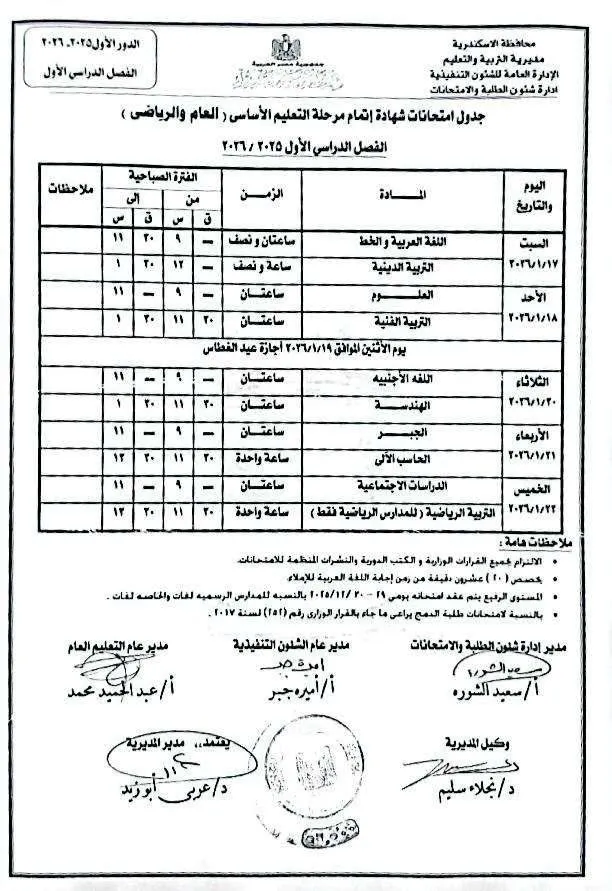 محافظة الاسكندرية
مديرية التربية والتعليم
الإدارة العامة للشئون التنفيذية
ادارة شئون الطلبة والامتحانات
جمهورية مصر العربية
الدور الأول ٢٠٢٥ـ ٢٠٢٦
الفصل الدراسي الأول
جدول امتحانات شهادة إتمام مرحلة التعليم الأساسى ( العام والرياضى )
الفصل الدراسي الأول ٢٠٢٥ / ٢٠٢٦
اليوم والتاريخ المـــادة الزمـن الفترة الصباحية ملاحظات
من إلى
ق س ق س
السبت ٢٠٢٦/١/١٧ اللغة العربية و الخط ساعتان و نصف ــ ٩ ٣٠ ١١
التربية الدينية ساعة و نصف ــ ١٢ ٣٠ ١
الأحد ٢٠٢٦/١/١٨ العلـــــوم ساعتـــان ــ ٩ ــ ١١
التربية الفنية ساعتـــان ٣٠ ١١ ٣٠ ١
يوم الأثنين الموافق ٢٠٢٦/١/١٩ أجازة عيد الغطاس
الثلاثاء ٢٠٢٦/١/٢٠ اللغه الأجنبيه ساعتـــان ــ ٩ ــ ١١
الهندســـة ساعتـــان ٣٠ ١١ ٣٠ ١
الأربعاء ٢٠٢٦/١/٢١ الجبـــر ساعتـــان ــ ٩ ــ ١١
الحاسب الآلى ساعة واحدة ٣٠ ١١ ٣٠ ١٢
الخميس ٢٠٢٦/١/٢٢ الدراسات الاجتماعية ساعتـــان ــ ٩ ــ ١١
التربية الرياضية ( للمدارس الرياضية فقط ) ساعة واحدة ٣٠ ١١ ٣٠ ١٢
ملاحظات هامة :
• الالتزام بجميع القرارات الوزارية و الكتب الدورية والنشرات المنظمة للامتحانات.
• يخصص ( ٢٠ ) عشرون دقيقة من زمن إجابة اللغة العربية للإملاء.
• المستوى الرفيع يتم عقد امتحانه يومى ٢٩ – ٣٠ /٢٠٢٥/١٢ بالنسبه للمدارس الرسميه لغات والخاصه لغات .
• بالنسبة لامتحانات طلبة الدمج يراعى ما جاء بالقرار الوزارى رقم (٢٥٢) لسنة ٢٠١٧ .
مدير إدارة شئون الطلبة والامتحانات
سعيد الشوره
أ/ سعيد الشوره
مدير عام الشئون التنفيذية
أ/ أميره جبر
مدير عام التعليم العام
أ/ عبد الحميد محمد
وكيل المديرية
د/ نجلاء سليم
يعتمد،، مدير المديرية
د/ عربى أبوزيد